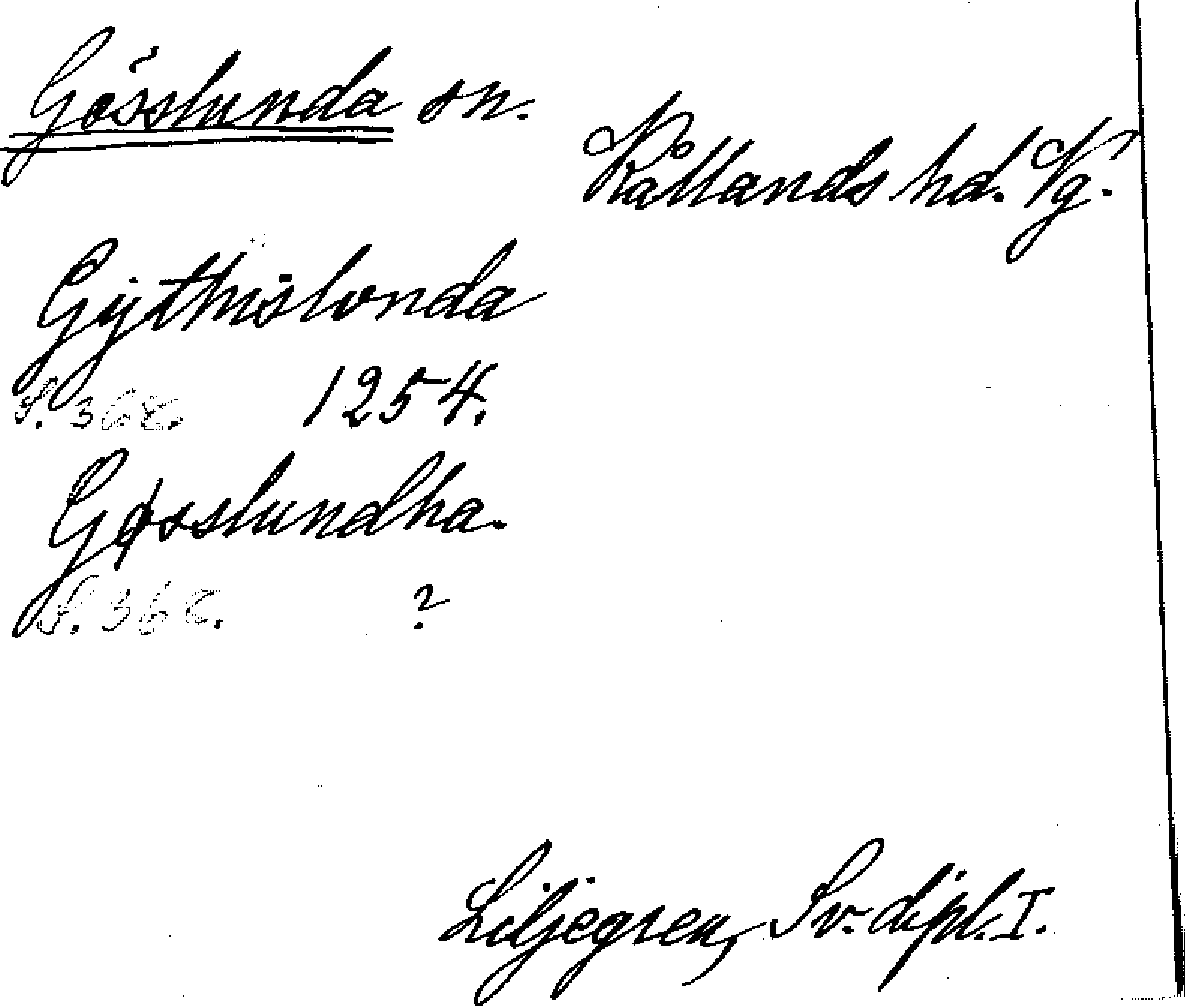 Gösslunda sn.
Kållands hd. Vg.
Gythislonda
S. 368. 1254.
Gøsslundha.
S. 368. ?
Liljegren, Sv. dipl. I.